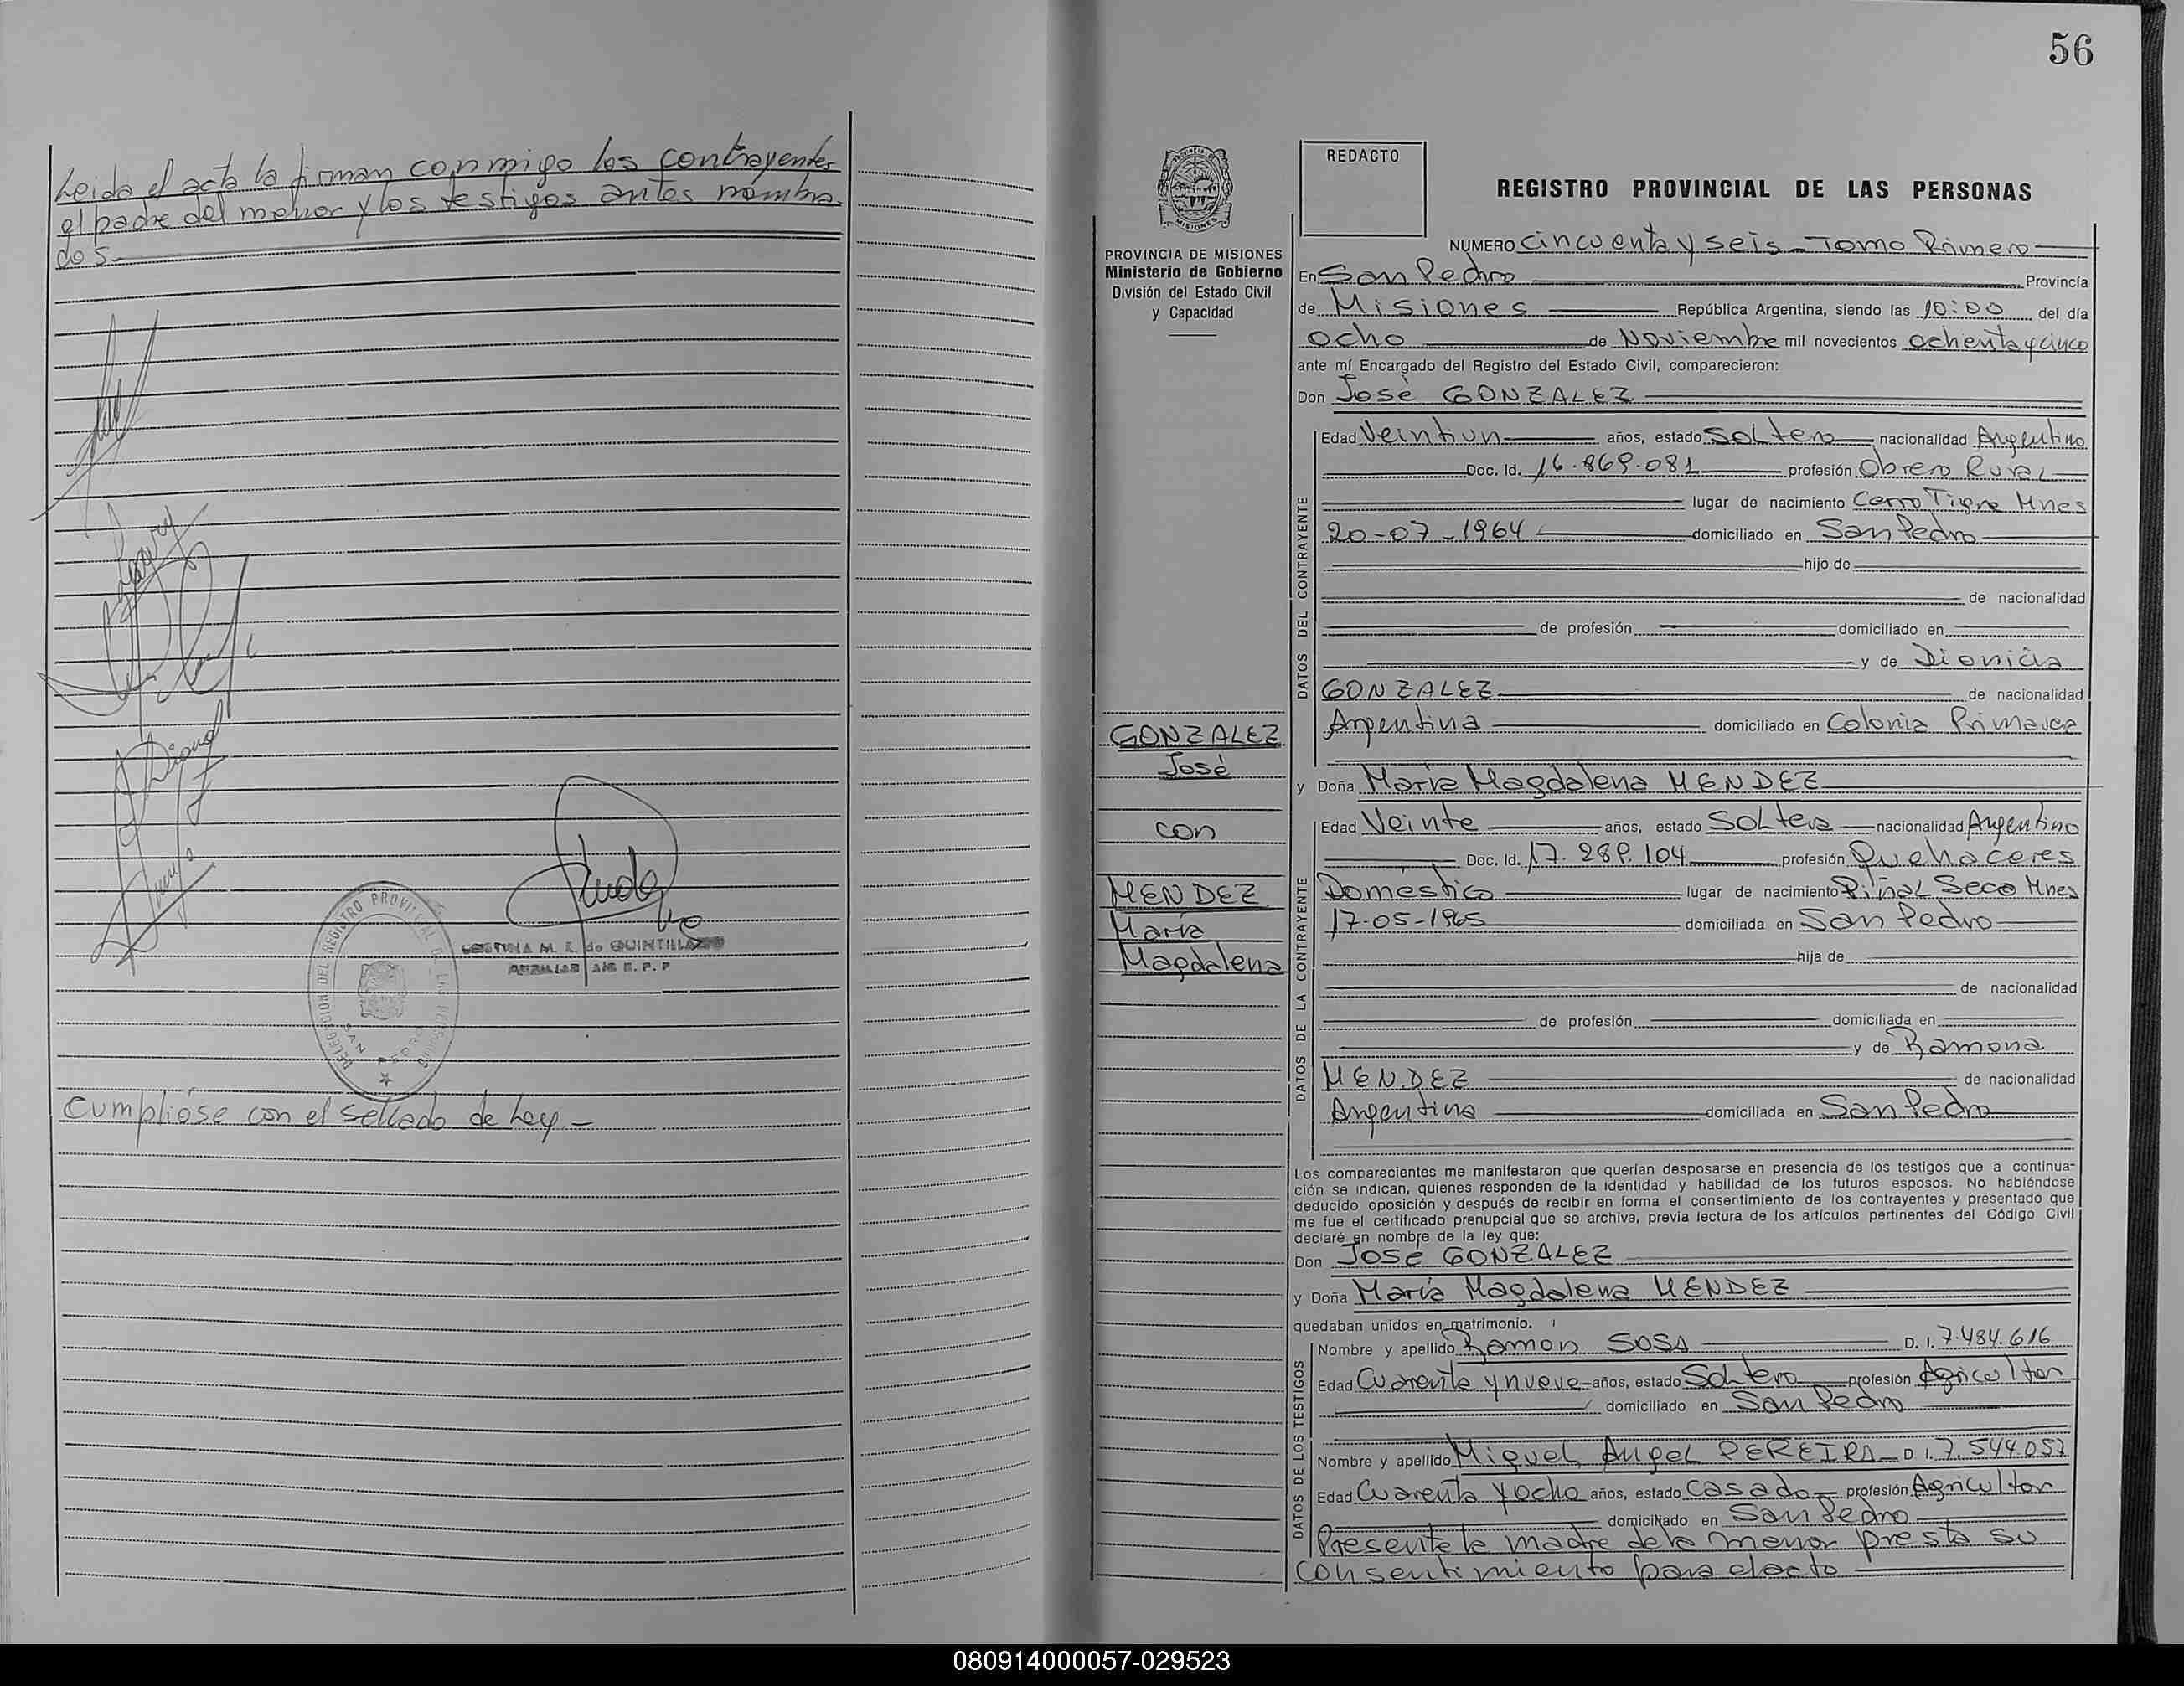 Leida el acta la firman conmigo los contrayentes
el padre del menor y los testigos antes nombra
dos.-
DELEGACION DEL REGISTRO PROVINCIAL DE LAS PERSONAS
SAN PEDRO
M. E. de QUINTILLANO
Cumplióse con el sellado de Ley.-
56
PROVINCIA DE MISIONES
Ministerio de Gobierno
División del Estado Civil
y Capacidad
GONZALEZ
José
con
MENDEZ
María
Magdalena
REDACTO
REGISTRO PROVINCIAL DE LAS PERSONAS
NUMERO Cincuenta y seis - Tomo Primero
En San Pedro Provincia
de Misiones República Argentina, siendo las 10:00 del día
ocho de Noviembre mil novecientos ochenta y cinco
ante mí Encargado del Registro del Estado Civil, comparecieron:
Don José GONZALEZ
DATOS DEL CONTRAYENTE
Edad Veintiun años, estado Soltero nacionalidad Argentino
Doc. Id. 16.869.081 profesión Obrero Rural
lugar de nacimiento Cerro Tigre Mnes
20-07-1964 domiciliado en San Pedro
hijo de
de nacionalidad
de profesión domiciliado en
y de Dionicia
GONZALEZ de nacionalidad
Argentina domiciliado en Colonia Primavera
y Doña María Magdalena MENDEZ
DATOS DE LA CONTRAYENTE
Edad Veinte años, estado Soltera nacionalidad Argentino
Doc. Id. 17.289.104 profesión Quehaceres
Doméstico lugar de nacimiento Piñal Seco Mnes
17-05-1965 domiciliada en San Pedro
hija de
de nacionalidad
de profesión domiciliada en
y de Ramona
MENDEZ de nacionalidad
Argentina domiciliada en San Pedro
Los comparecientes me manifestaron que querían desposarse en presencia de los testigos que a continua-
ción se indican, quienes responden de la identidad y habilidad de los futuros esposos. No habiéndose
deducido oposición y después de recibir en forma el consentimiento de los contrayentes y presentado que
me fue el certificado prenupcial que se archiva, previa lectura de los artículos pertinentes del Código Civil
declaré en nombre de la ley que:
Don José GONZALEZ
y Doña María Magdalena MENDEZ
quedaban unidos en matrimonio.
DATOS DE LOS TESTIGOS
Nombre y apellido Ramon SOSA D. I. 7.484.616
Edad Cuarenta y nueve años, estado Soltero profesión Agricultor
domiciliado en San Pedro
Nombre y apellido Miguel Angel PEREIRA D. I. 7.544.057
Edad Cuarenta y ocho años, estado casado profesión Agricultor
domiciliado en San Pedro
Presente la madre de la menor presta su
consentimiento para el acto
080914000057-029523